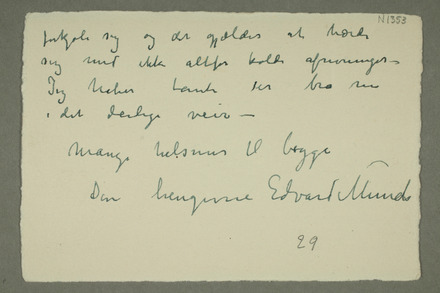 N1353
forkjøle sig og det gjælder at hærde
sig med ikke altfor kolde afrivninger –
Jeg haber tante har bra nu
i det deilige veir –
Mange hilsener til begge
Din hengivne Edvard Munch
29